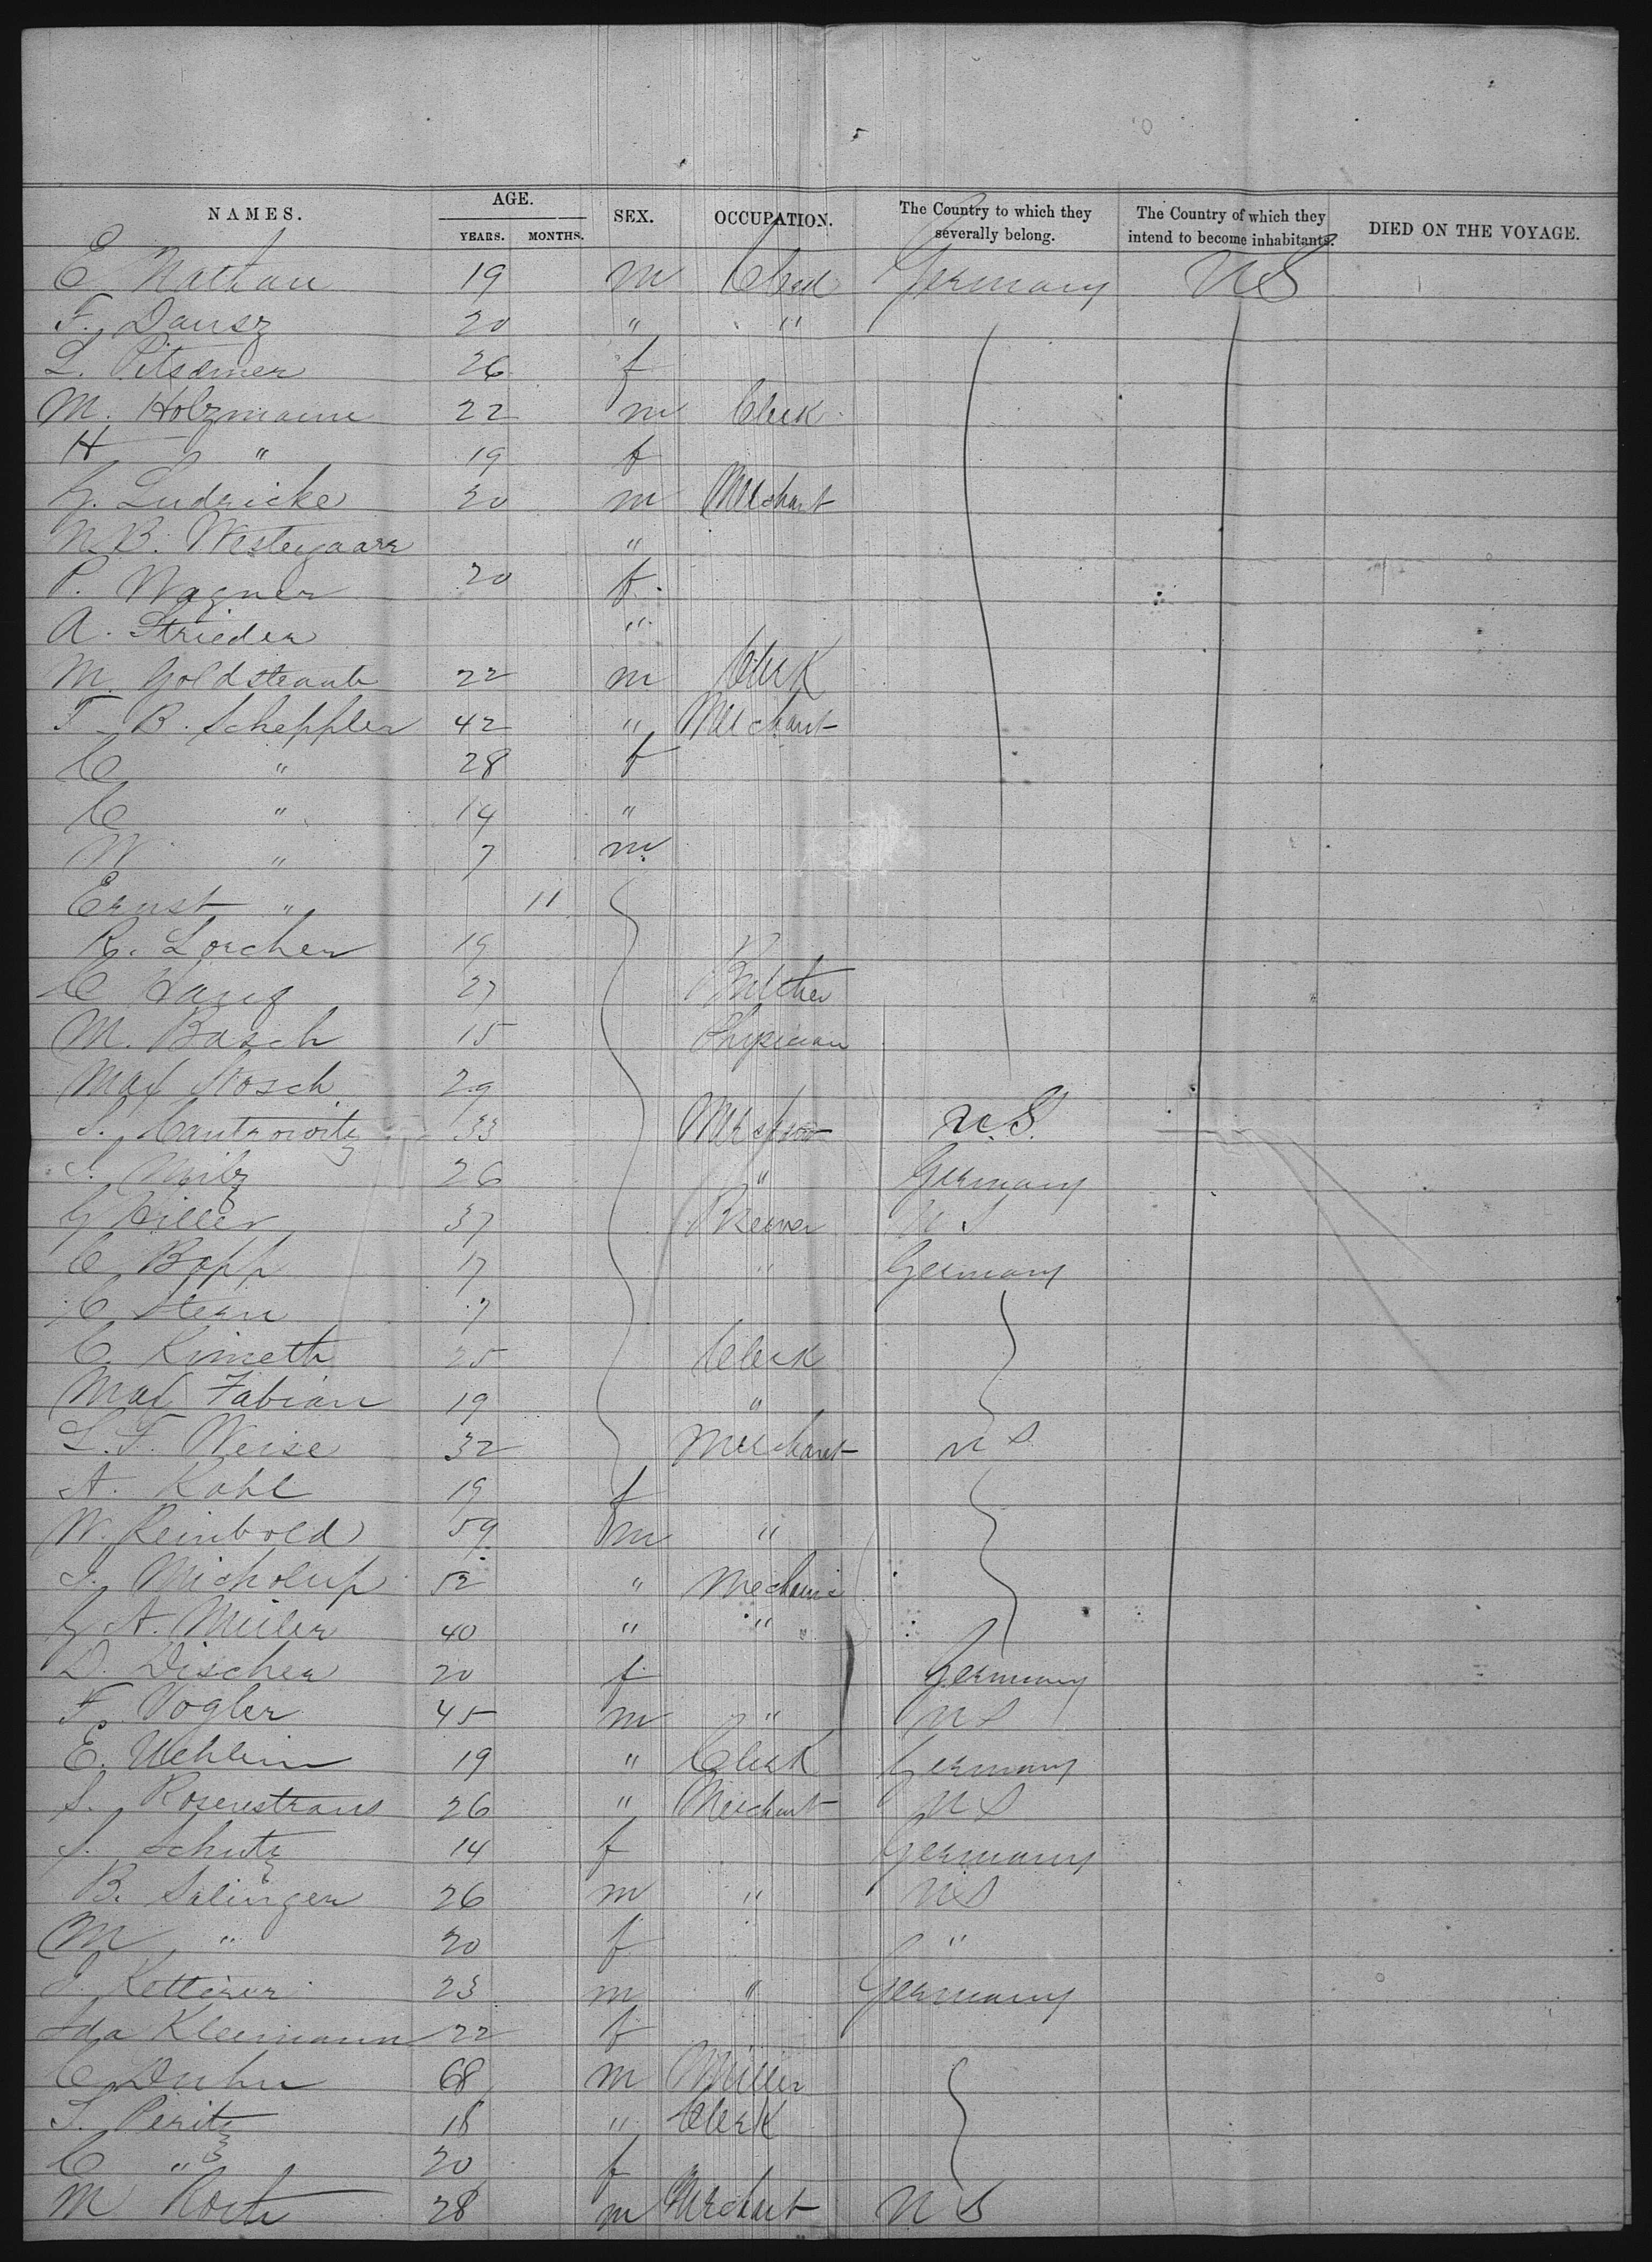 NAMES. AGE. YEARS. MONTHS. SEX. OCCUPATION. The Country to which they severally belong. The Country of which they intend to become inhabitants. DIED ON THE VOYAGE.
E Nathan 19 m Germany US
F. Dansz 20 " "
L. 26 f
M. Holzmann 22 m Clerk
H " 19 f
G. Ludricke 20 m Merchant
N. B. Westegaarr "
P. Wagner 20 f
A. Strieder "
M. Goldstaub 22 m Clerk
F. B. Scheppler 42 " Merchant
C " 28 f
C " 14 "
W " 7 m
Ernst " 11
R. Lorcher 19
C Haug 27 Butcher
M. Basch 15 Physician
Max Nosch 29
S. Cantrowitz 33 U.S.
S. 26 " Germany
G Hiller 37 Brewer U S
C Bopp 17 " Germany
C Stern 7
C. Kimeth 25 Clerk
Max Fabian 19 "
L. F. Weise 32 Merchant U S
A. Kahl 19 f
W. Reinbold 59 m "
J. Micholup 52 " Mechanic
G A. Miller 40 " "
D. Discher 20 f Germany
F. Vogler 45 m " U S
E. Uehlein 19 " Clerk Germany
S. Rosenstraus 26 " Merchant U S
S. Schutz 14 f Germany
B. Salinger 26 m " U S
M " 20 f "
J. Ketterer 23 m " Germany
Ida Kleimann 22 f
C Duhn 68 m Miller
S. Peritz 18 " Clerk
C " 20 f
M Roth 28 m Merchant U S